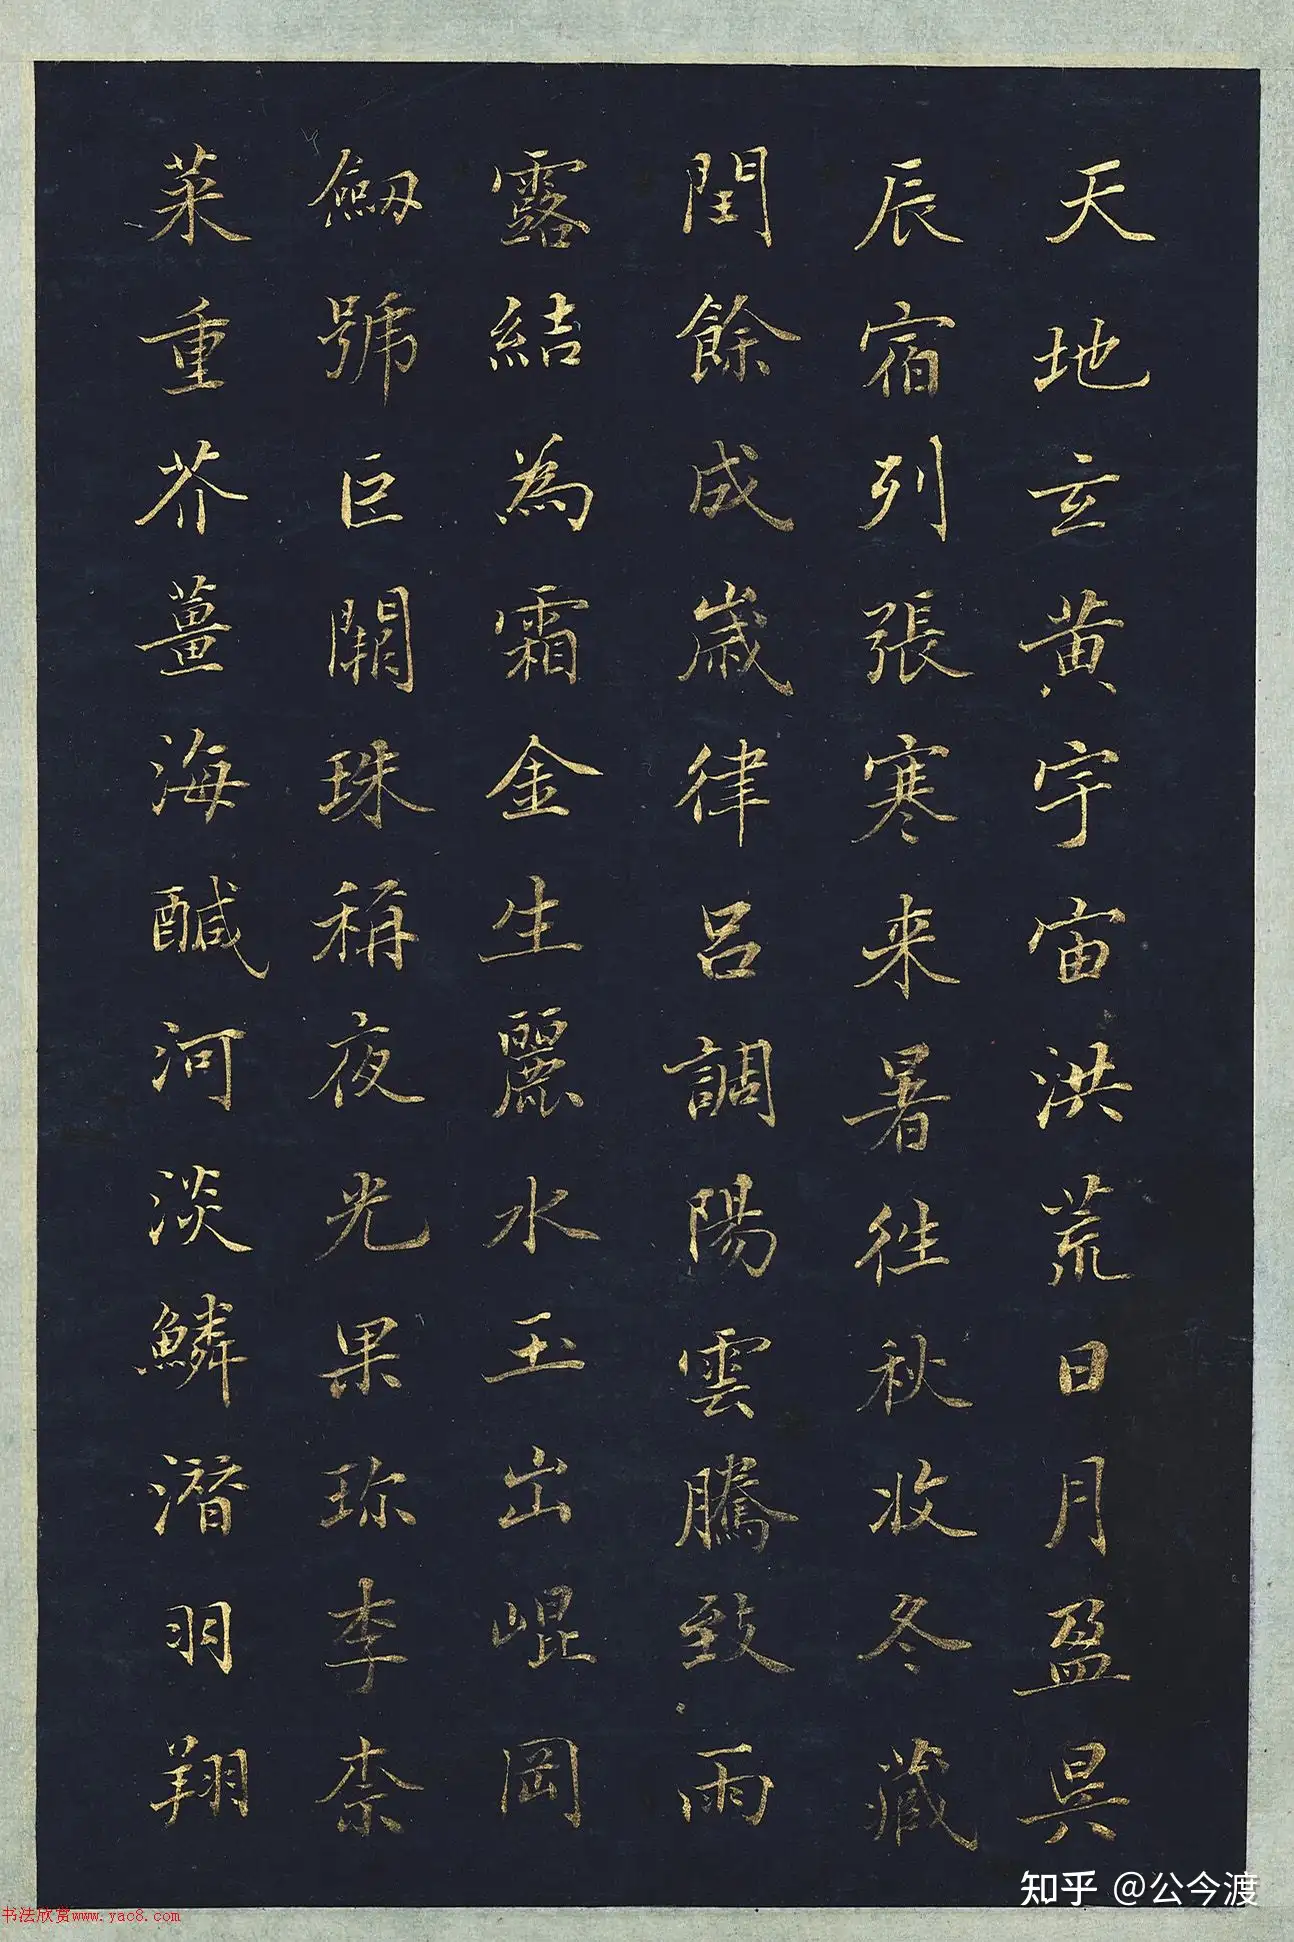 天地玄黃宇宙洪荒日月盈昃
辰宿列張寒来暑往秋收冬藏
閏餘成歲律呂調陽雲騰致雨
露結為霜金生麗水玉出崐岡
劔號巨闕珠稱夜光果珎李柰
菜重芥薑海鹹河淡鱗潛羽翔
知乎 @公今渡
书法欣赏www.yac8.com